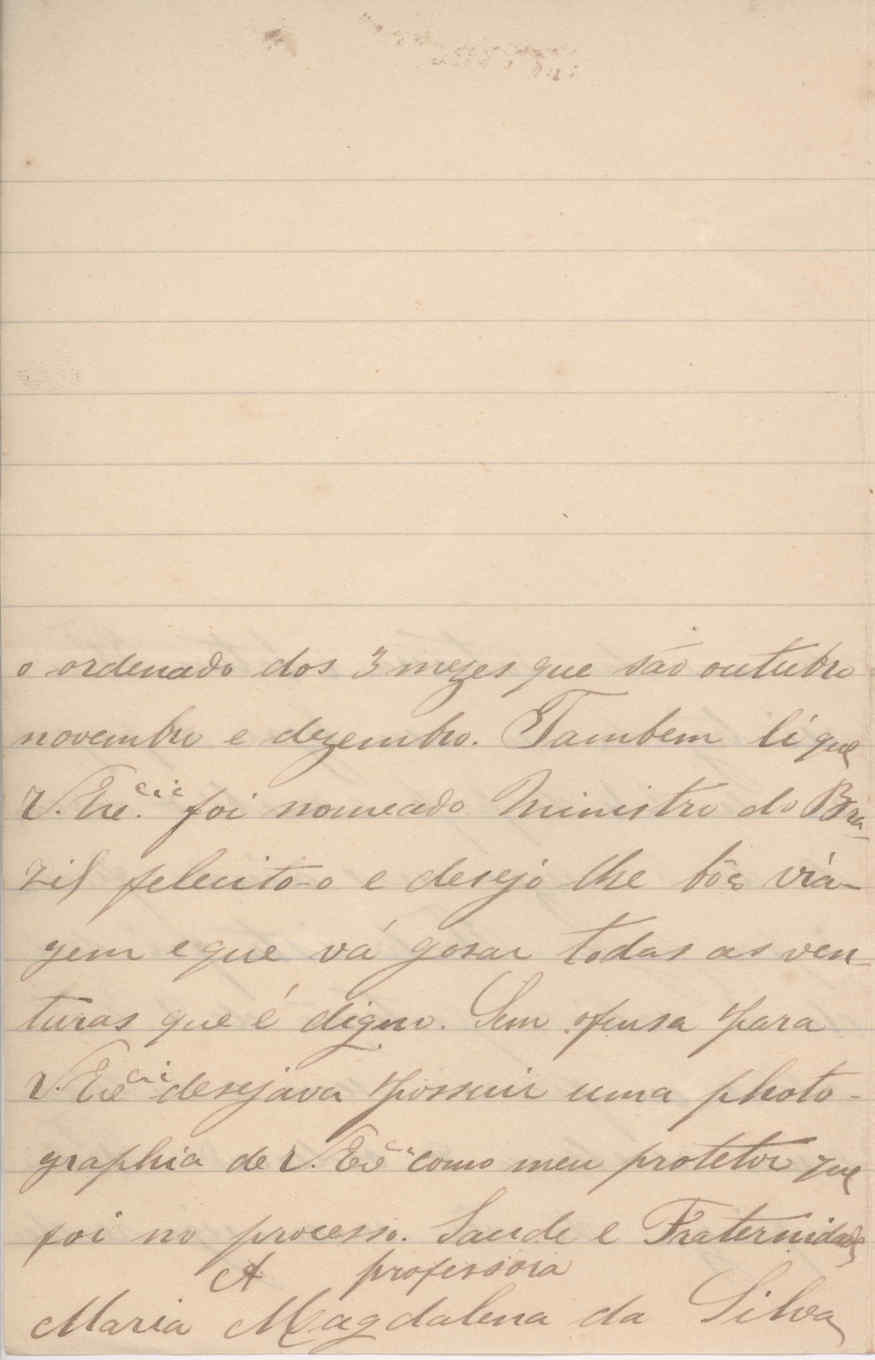 o ordenado dos 3 mezes que são outubro
novembro e dezembro. Tambem lí que
V. Exc.cia foi nomeado Ministro do Bra-
zil felicito-o e desejo lhe bôa via-
gem e que vá gosar todas as ven-
turas que é digno. Sem ofensa para
V. Excia desejava possuir uma photo-
graphia de V. Excia como meu protetor que
foi no processo. Saude e Fraternidade
A professora
Maria Magdalena da Silva